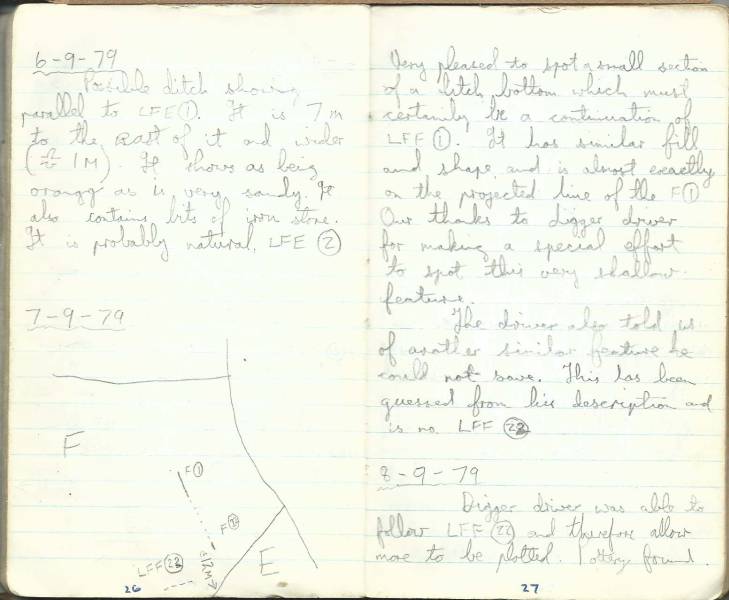 6-9-79
Possible ditch showing
parallel to LFE ①. It is 7m
to the East of it and wider
(≈ 1M). It shows as being
orangy as is very sandy. It
also contains bits of iron stone.
It is probably natural. LFE ②
7-9-79
F
F①
F
LFF
12M
E
26
Very pleased to spot a small section
of a ditch bottom which must
certainly be a continuation of
LFF ①. It has similar fill
and shape and is almost exactly
on the projected line of the F①
Our thanks to digger driver
for making a special effort
to spot this very shallow
feature.
The driver also told us
of another similar feature he
could not save. This has been
guessed from his description and
is no. LFF
8-9-79
Digger driver was able to
follow LFF and therefore allow
more to be plotted. Pottery found.
27